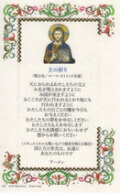 主の祈り
(聖公会/ローマ・カトリック共通)
天におられるわたしたちの父よ
み名が聖とされますように
み国が来ますように
みこころが天に行われるとおり地にも
行われますように
わたしたちの日ごとの糧を今日も
お与えください
わたしたちの罪をおゆるしください
わたしたちも人をゆるします
わたしたちを誘惑におちいらせず
悪からお救いください
国と力と栄光は、永遠に
あなたのものです
アーメン